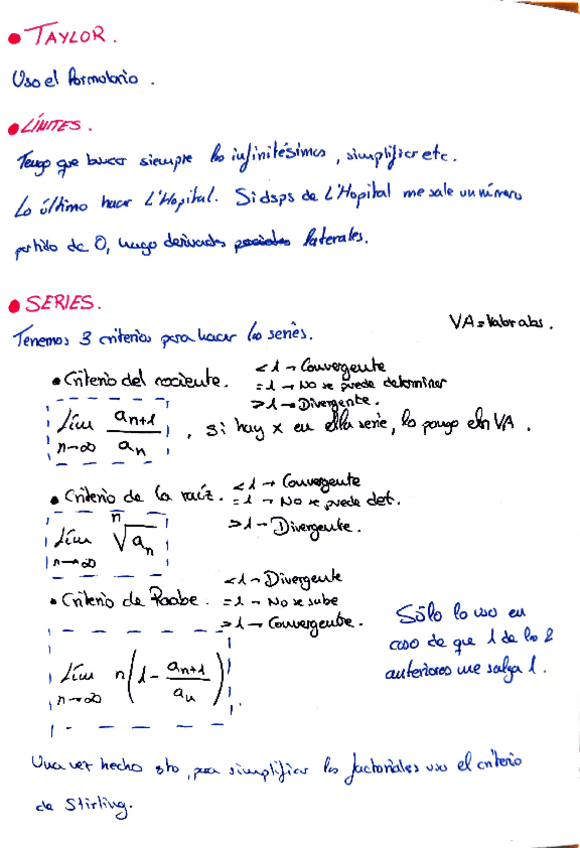 • TAYLOR.
Uso el formulario.
• LÍMITES.
Tengo que buscar siempre los infinitésimos, simplificar etc.
Lo último hacer L'Hopital. Si dsps de L'Hopital me sale un número
partido de 0, hago derivadas laterales.
• SERIES.
VA = Valor abs.
Tenemos 3 criterios para hacer las series.
• Criterio del cociente. <1 → Convergente
=1 → No se puede determinar
>1 → Divergente.
lím n→∞ aₙ₊₁/aₙ, si hay x en la serie, lo pongo en VA.
• Criterio de la raíz. <1 → Convergente
=1 → No se puede det.
>1 → Divergente.
lím n→∞ ⁿ√aₙ
• Criterio de Raabe. <1 → Divergente
=1 → No se sabe
>1 → Convergente.
lím n→∞ n(1 - aₙ₊₁/aₙ)
Sólo lo uso en
caso de que 1 de los 2
anteriores me salga 1.
Una vez hecho sto, para simplificar los factoriales uso el criterio
de Stirling.